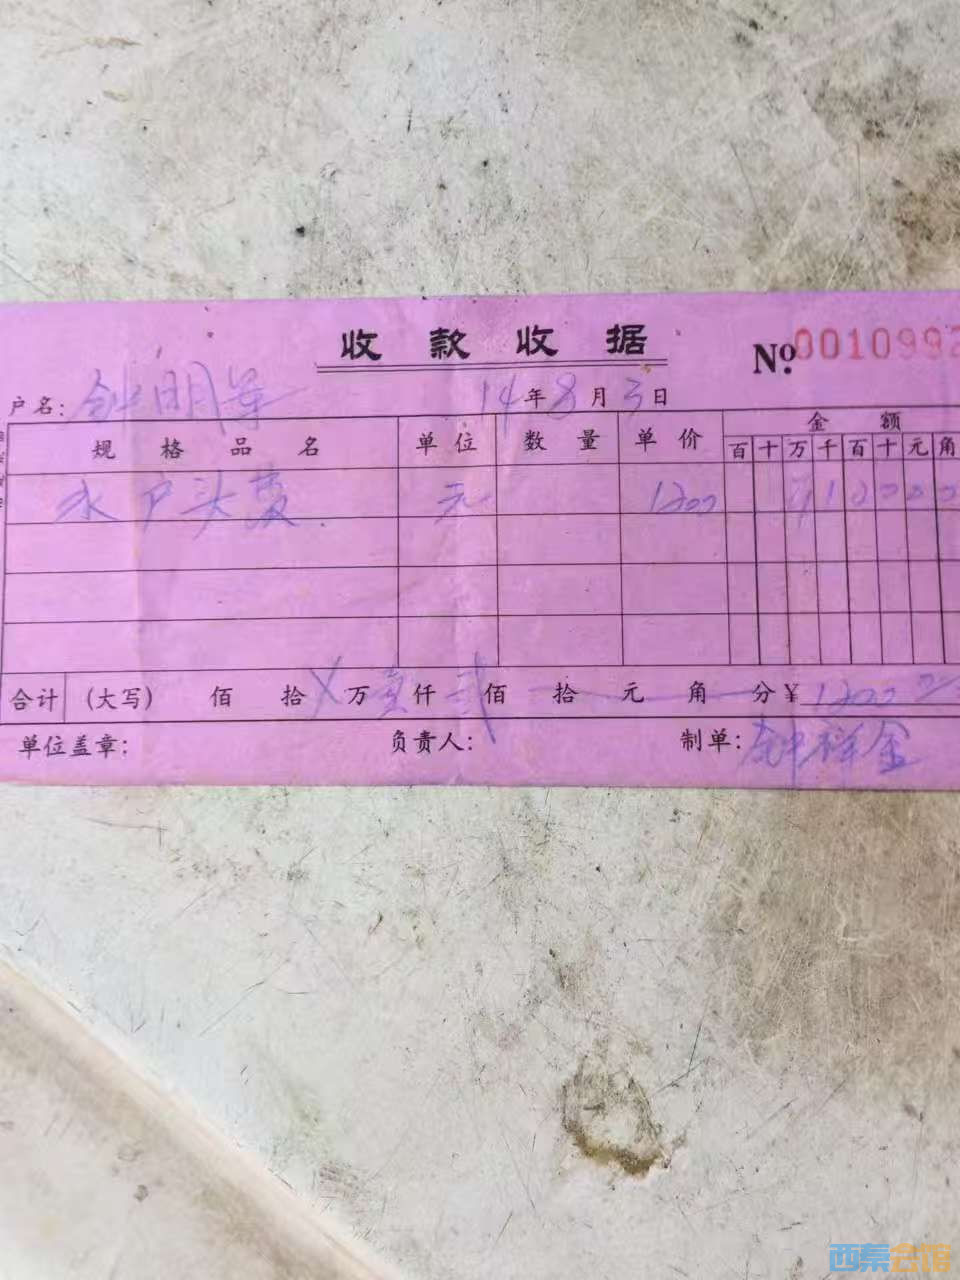 收款收据
No. 0010992
户名: 钟明
14年8月3日
规格品名 单位 数量 单价 金额
百 十 万 千 百 十 元 角
水户头费 元 1200 ¥120000
合计 (大写) 佰 拾 X 万 壹 仟 弍 佰 拾 元 角 分 ¥ 1200.00
单位盖章: 负责人: 制单: 钟祥金
西秦会馆